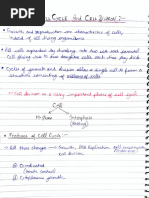 CELL CYCLE And CELL DIVISION :-
• Growth and reproduction are characteristics of cells,
indeed of all living organisms.
• All cells reproduce by dividing into two, with each parental
cell giving rise to two daughter cells each time they divide.
• Cycles of growth and division allow a single cell to form a
structure consisting of millions of cells.
Cell division is a very important phase of cell cycle
Cell
M-Phase Interphase
(Dividing) (Resting)
* Features of Cell Cycle :-
• Cell Grow Changes → Growth, DNA Replication,
① Coordinated
② Cytoplasmic growth